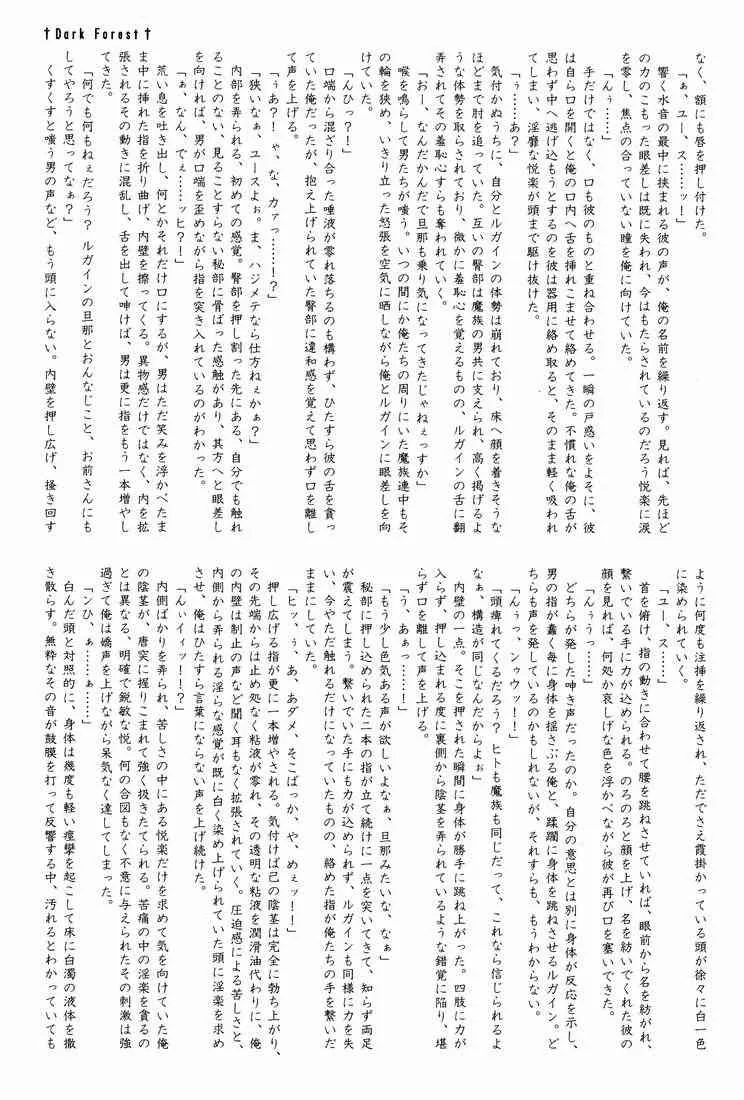 †Dark Forest†
なく、額にも唇を押し付けた。
「ぁ、ユー、ス……ッ！」
響く水音の最中に挟まれる彼の声が、俺の名前を繰り返す。見れば、先ほど
の力のこもった眼差しは既に失われ、今はもたらされているのだろう悦楽に涙
を零し、焦点の合っていない瞳を俺に向けていた。
「んぅ……」
手だけではなく、口も彼のものと重ね合わせる。一瞬の戸惑いをよそに、彼
は自ら口を開くと俺の口内へ舌を挿れこませて絡めてきた。不慣れな俺の舌が
思わず中へ逃げ込もうとするのを彼は器用に絡め取ると、そのまま軽く吸われ
てしまい、淫靡な悦楽が頭まで駆け抜けた。
「ぅ……あ？」
気付かぬうちに、自分とルガインの体勢は崩れており、床へ顔を着きそうな
ほどまで肘を追っていた。互いの臀部は魔族の男共に支えられ、高く掲げるよ
うな体勢を取らされており、微かに羞恥心を覚えるものの、ルガインの舌に翻
弄されてその羞恥心すらも奪われていく。
「おー、なんだかんだで旦那も乗り気になってきたじゃねぇっすか」
喉を鳴らして男たちが嗤う。いつの間にか俺たちの周りにいた魔族連中もそ
の輪を狭め、いきり立った怒張を空気に晒しながら俺とルガインに眼差しを向
けていた。
「んひっ？！」
口端から混ざり合った唾液が零れ落ちるのも構わず、ひたすら彼の舌を貪っ
ていた俺だったが、抱え上げられていた臀部に違和感を覚えて思わず口を離し
て声を上げる。
「ぅあ？！　ゃ、な、カァっ……！？」
「狭いなぁ、ユースよぉ。ま、ハジメテなら仕方ねぇかぁ？」
内部を弄られる、初めての感覚。臀部を押し割った先にある、自分でも触れ
ることのない、見ることすらない秘部に骨ばった感触があり、其方へと眼差し
を向ければ、男が口端を歪めながら指を突き入れているのがわかった。
「ぁ、なん、でぇ……ッヒ？！」
荒い息を吐き出し、何とかそれだけ口にするが、男はただ笑みを浮かべたま
ま中に挿れた指を折り曲げ、内壁を擦ってくる。異物感だけではなく、内を拡
張されるその動きに混乱し、舌を出して呻けば、男は更に指をもう一本増やし
てきた。
「何でも何もねぇだろう？　ルガインの旦那とおんなじこと、お前さんにも
してやろうと思ってなぁ？」
くすくすと嗤う男の声など、もう頭に入らない。内壁を押し広げ、掻き回す
ように何度も注挿を繰り返され、ただでさえ霞掛かっている頭が徐々に白一色
に染められていく。
「ユー、ス……」
首を俯け、指の動きに合わせて腰を跳ねさせていれば、眼前から名を紡がれ、
繋いでいる手に力が込められる。のろのろと顔を上げ、名を紡いでくれた彼の
顔を見れば、何処か哀しげな色を浮かべながら彼が再び口を塞いできた。
「んぅうっ……」
どちらが発した呻き声だったのか。自分の意思とは別に身体が反応を示し、
男の指が蠢く毎に身体を揺さぶる俺と、蹂躙に身体を跳ねさせるルガイン。ど
ちらも声を発しているのかもしれないが、それすらも、もうわからない。
「んぅぅっ、ンゥウッ！！」
「頭痺れてくるだろう？　ヒトも魔族も同じだって、これなら信じられるよ
なぁ、構造が同じなんだからよぉ」
内壁の一点。そこを押された瞬間に身体が勝手に跳ね上がった。四肢に力が
入らず、押し込まれる度に裏側から陰茎を弄られているような錯覚に陥り、堪
らず口を離して声を上げる。
「う、あぁっ……！」
「もう少し色気ある声が欲しいよなぁ、旦那みたいな、なぁ」
秘部に押し込められた二本の指が立て続けに一点を突いてきて、知らず両足
が震えてしまう。繋いでいた手にも力が込められず、ルガインも同様に力を失
い、今やただ触れるだけになっていたものの、絡めた指が俺たちの手を繋いだ
ままにしていた。
「ヒッ、ぅ、あ、あダメ、そこばっか、や、めぇッ！！」
押し広げる指が更に一本増やされる。気付けば己の陰茎は完全に勃ち上がり、
その先端からは止め処なく粘液が零れ、その透明な粘液を潤滑油代わりに、俺
の内壁は制止の声など聞く耳もなく拡張されていく。圧迫感による苦しさと、
内側から弄られる淫らな感覚が既に白く染め上げられていた頭に淫楽を求め
させ、俺はひたすら言葉にならない声を上げ続けた。
「んぃイィッ！！？」
内側ばかりを弄られ、苦しさの中にある悦楽だけを求めて気を向けていた俺
の陰茎が、唐突に握りこまれて強く扱きたてられる。苦痛の中の淫楽を貪るの
とは異なる、明確で鋭敏な悦。何の合図もなく不意に与えられたその刺激は強
過ぎて俺は嬌声を上げながら呆気なく達してしまった。
「ンひ、ぁ……ぁ……」
白んだ頭と対照的に、身体は幾度も軽い痙攣を起こして床に白濁の液体を撒
き散らす。無粋なその音が鼓膜を打って反響する中、汚れるとわかっていても